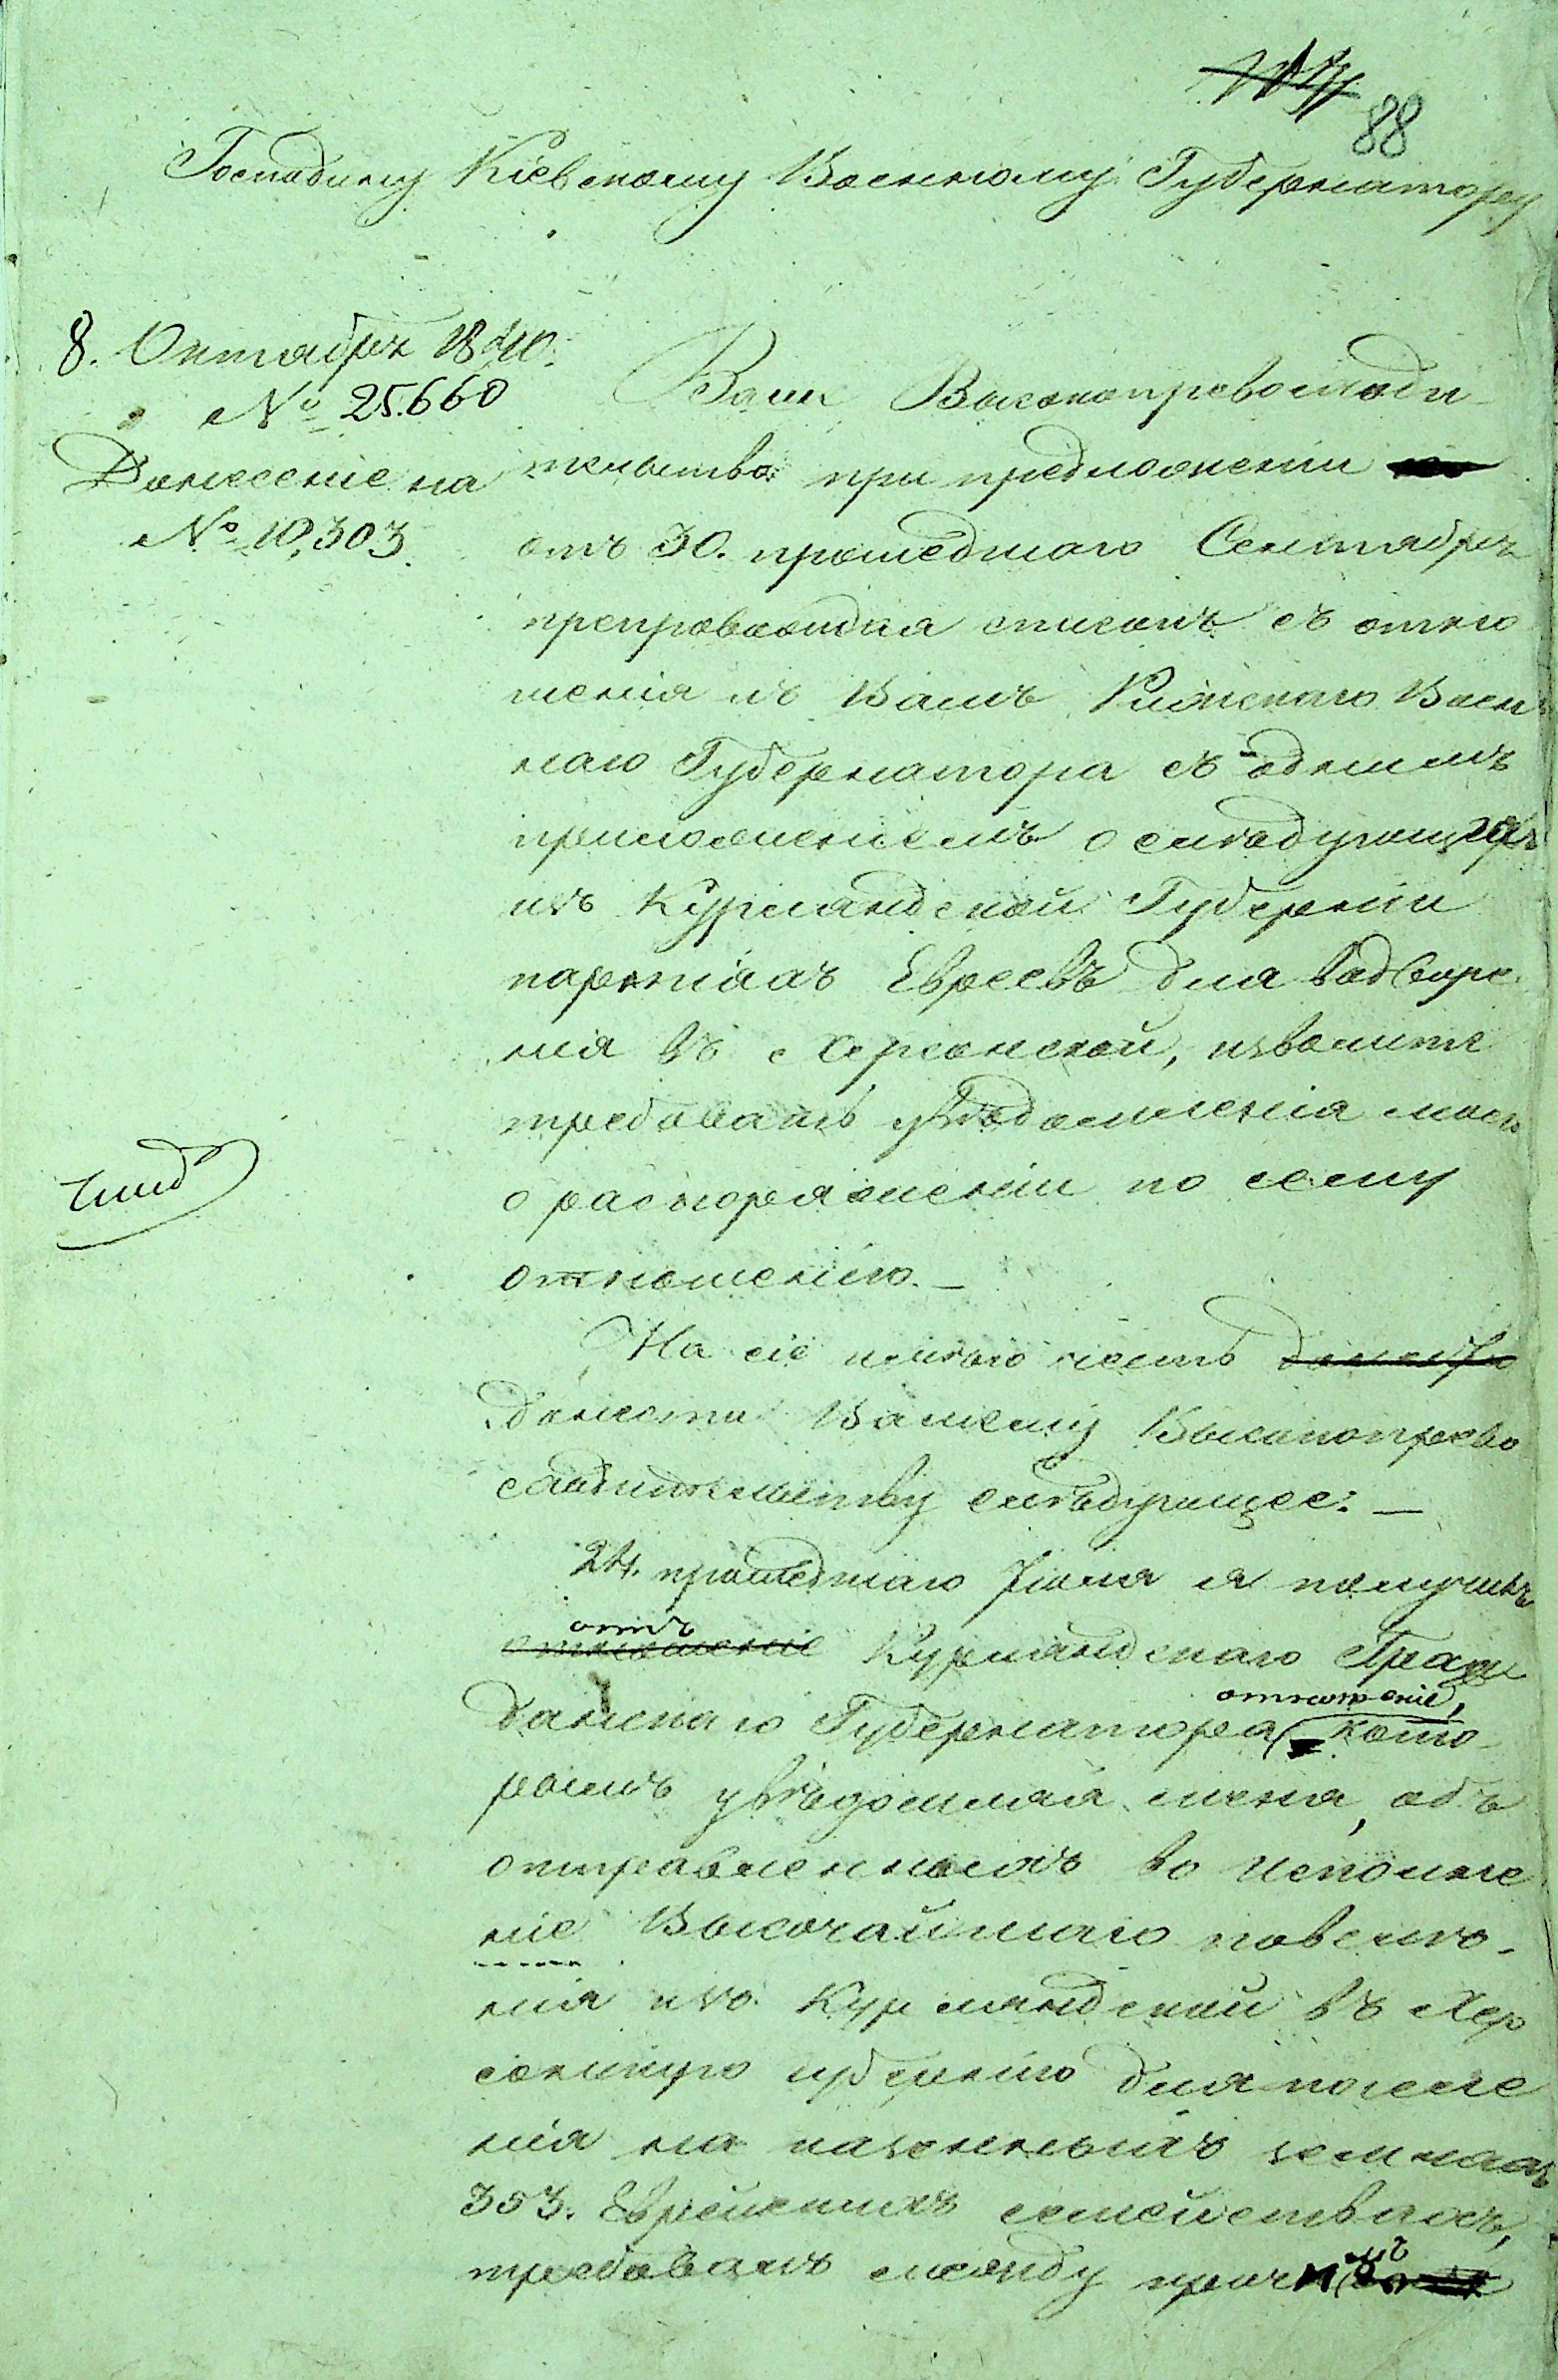 88
Господину Кіевскому Военному Губернатору
8. Октября 1840.
№ 25.660
Донесеніе на
№ 10,303.
Ваше Высокопревосходи-
тельство при предложеніи
отъ 30. прошедшаго Сентября
препровождая списокъ съ отно
шенія къ Вамъ Рижскаго Воен
наго Губернатора съ однимъ
приложеніемъ о слѣдующихъ
изъ Курляндской Губерніи
партіяхъ Евреевъ для водворе
нія въ Херсонской, изволите
требовать увѣдомленія моего
о распоряженіи по сему
отношенію. —
На сіе имѣю честь донести
донести Вашему Высокопрево
сходительству слѣдующее: —
24. прошедшаго Іюля я получилъ
отъ
отношеніе Курляндскаго Граж
отношеніе,
данскаго Губернатора кото-
рымъ увѣдомляя меня, объ
отправленныхъ во исполне
ніе Высочайшаго повелѣ-
нія изъ Курляндской въ Хер
сонскую губернію для поселе
нія на казенныхъ земляхъ
353. Еврейскихъ семействахъ,
требовалъ между проч